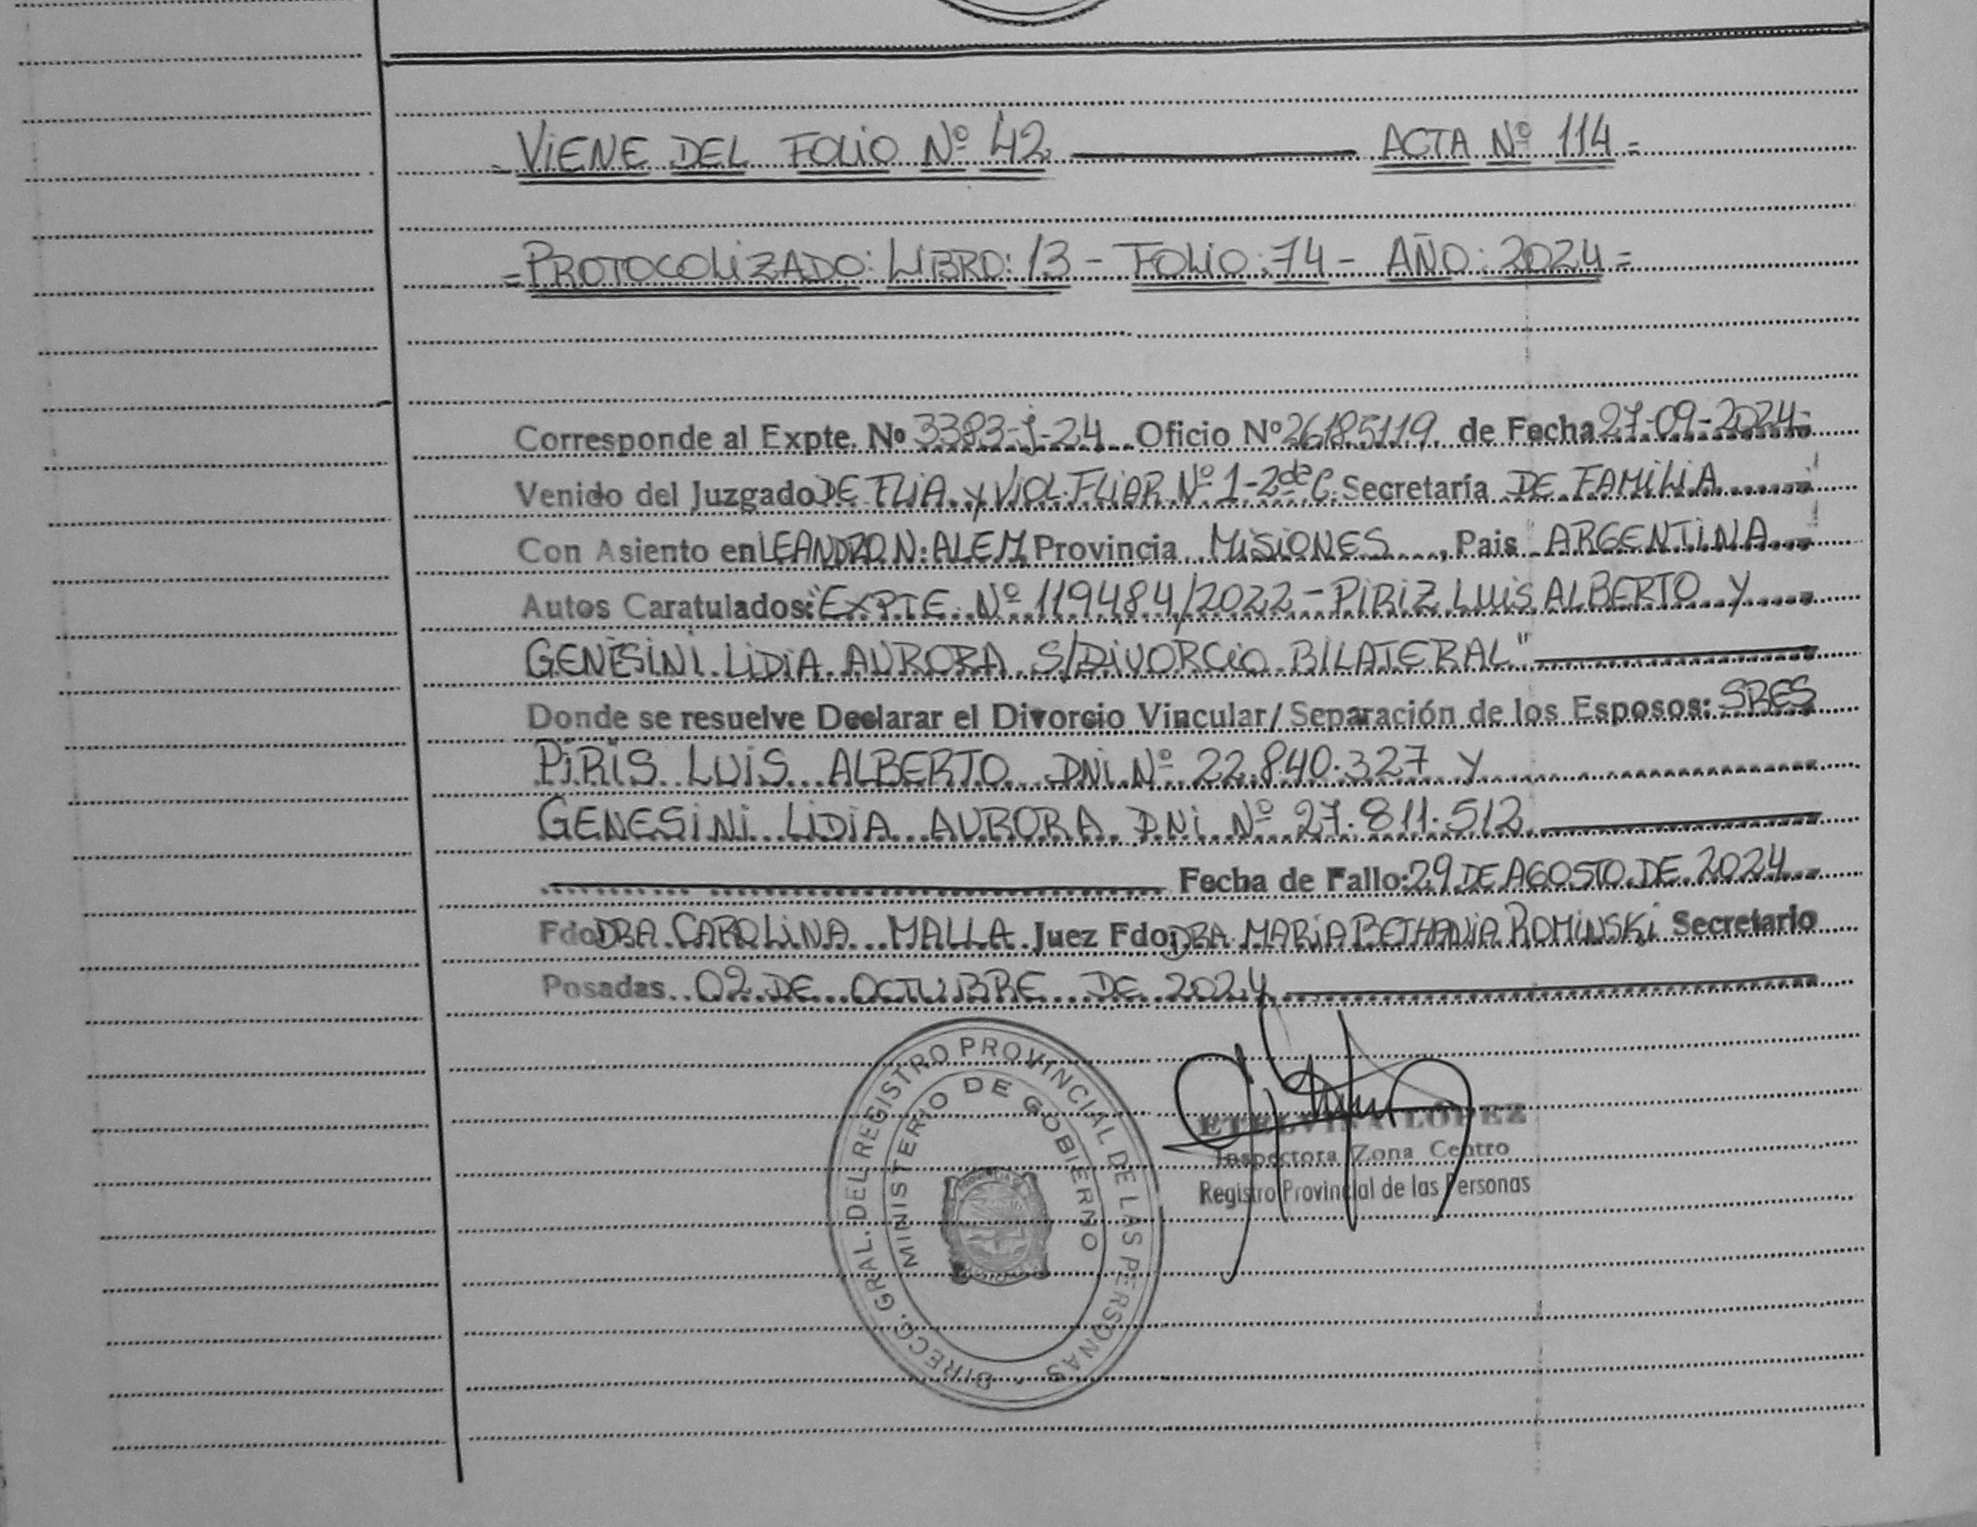 = VIENE DEL FOLIO Nº 42 ACTA Nº 114 =
= PROTOCOLIZADO: LIBRO: 13 - FOLIO: 74 - AÑO: 2024 =
Corresponde al Expte. Nº 3383-J-24 Oficio Nº 26185119 de Fecha 27-09-2024-
Venido del Juzgado DE FLIA. y VIOL. FLIAR Nº 1-2da C. Secretaría DE FAMILIA
Con Asiento en LEANDRO N. ALEM Provincia MISIONES, Pais ARGENTINA
Autos Caratulados: "EXPTE. Nº 119484/2022 - PIRIZ LUIS ALBERTO Y
GENESINI LIDIA AURORA S/DIVORCIO BILATERAL"
Donde se resuelve Declarar el Divorcio Vincular/ Separación de los Esposos: SRES
PIRIS LUIS ALBERTO DNI Nº 22.840.327 Y
GENESINI LIDIA AURORA DNI Nº 27.811.512
Fecha de Fallo: 29 DE AGOSTO DE 2024
Fdo DRA. CAROLINA MALLA Juez Fdo; DRA. MARIA BETHANIA ROMINSKI Secretario
Posadas 02 DE OCTUBRE DE 2024
DIRECC. GRAL. DEL REGISTRO PROVINCIAL DE LAS PERSONAS
MINISTERIO DE GOBIERNO
ETELVINA LÓPEZ
Inspectora Zona Centro
Registro Provincial de las Personas